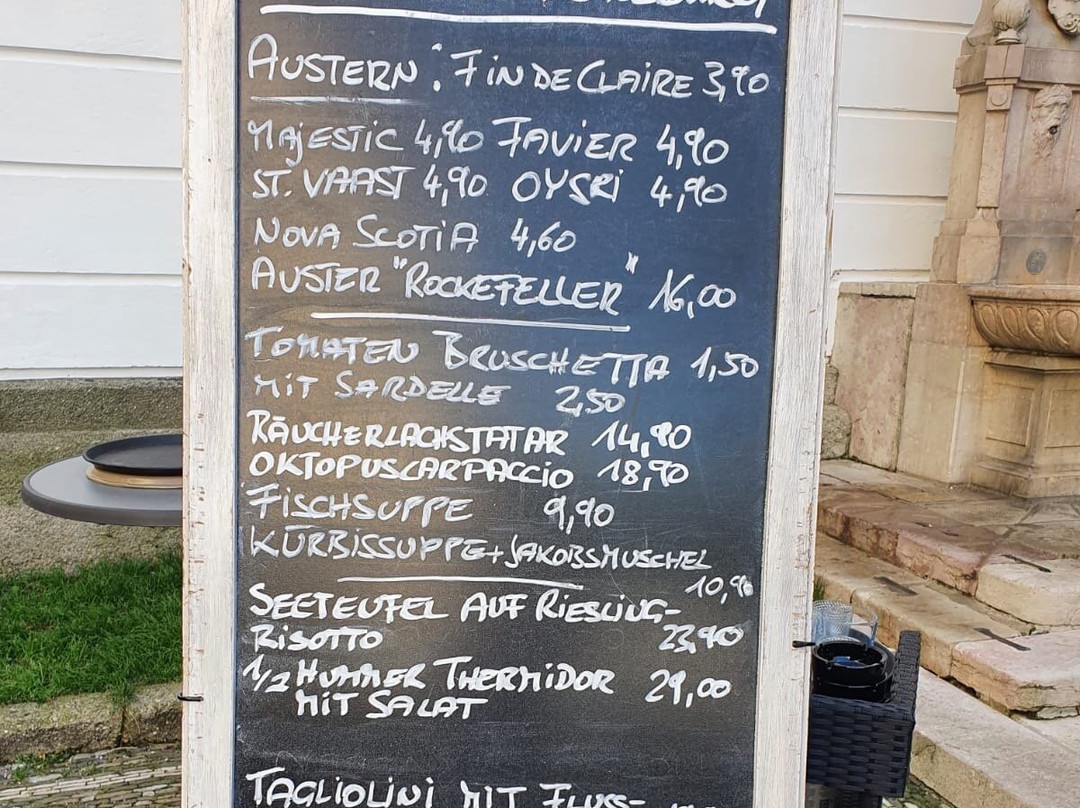 AUSTERN: FIN DE CLAIRE 3,90
MAJESTIC 4,90 JAVIER 4,90
ST. VAAST 4,90 OYSRI 4,90
NOVA SCOTIA 4,60
AUSTER "ROCKEFELLER" 16,00
TOMATEN BRUSCHETTA 1,50
MIT SARDELLE 2,50
RÄUCHERLACHSTATAR 14,90
OKTOPUSCARPACCIO 18,90
FISCHSUPPE 9,90
KÜRBISSUPPE + JAKOBSMUSCHEL
10,90
SEETEUFEL AUF RIESLING-
RISOTTO 23,90
1/2 HUMMER THERMIDOR 29,00
MIT SALAT
TAGLIOLINI MIT FLUSS-